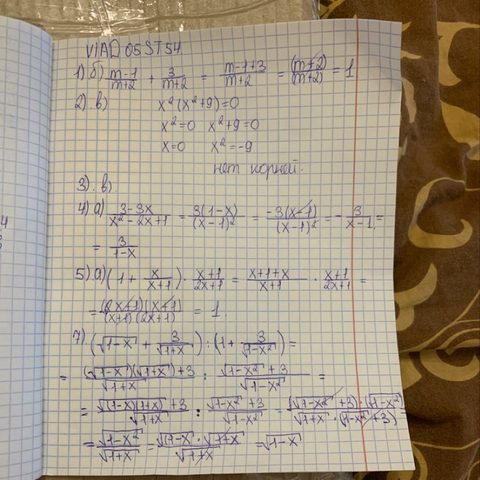 VIAD 05ST54
1) б) (m-1)/(m+2) + 3/(m+2) = (m-1+3)/(m+2) = (m+2)/(m+2) = 1
2) в) x²(x²+9)=0
x²=0 x²+9=0
x=0 x²=-9
нет корней.
3). в)
4) а) (3-3x)/(x²-2x+1) = 3(1-x)/(x-1)² = -3(x-1)/(x-1)² = -3/(x-1) =
= 3/(1-x)
5) а) (1 + x/(x+1)) · (x+1)/(2x+1) = (x+1+x)/(x+1) · (x+1)/(2x+1) =
= (2x+1)(x+1)/(x+1)(2x+1) = 1.
7) (√(1-x) + 3/√(1+x)) : (1 + 3/√(1-x²)) =
= ((√(1-x))(√(1+x))+3)/√(1+x) : (√(1-x²)+3)/√(1-x²) =
= (√((1-x)(1+x))+3)/√(1+x) : (√(1-x²)+3)/√(1-x²) = (√(1-x²)+3)·(√(1-x²))/(√(1+x)·(√(1-x²)+3))
= √(1-x²)/√(1+x) = √(1-x)·√(1+x)/√(1+x) = √(1-x)